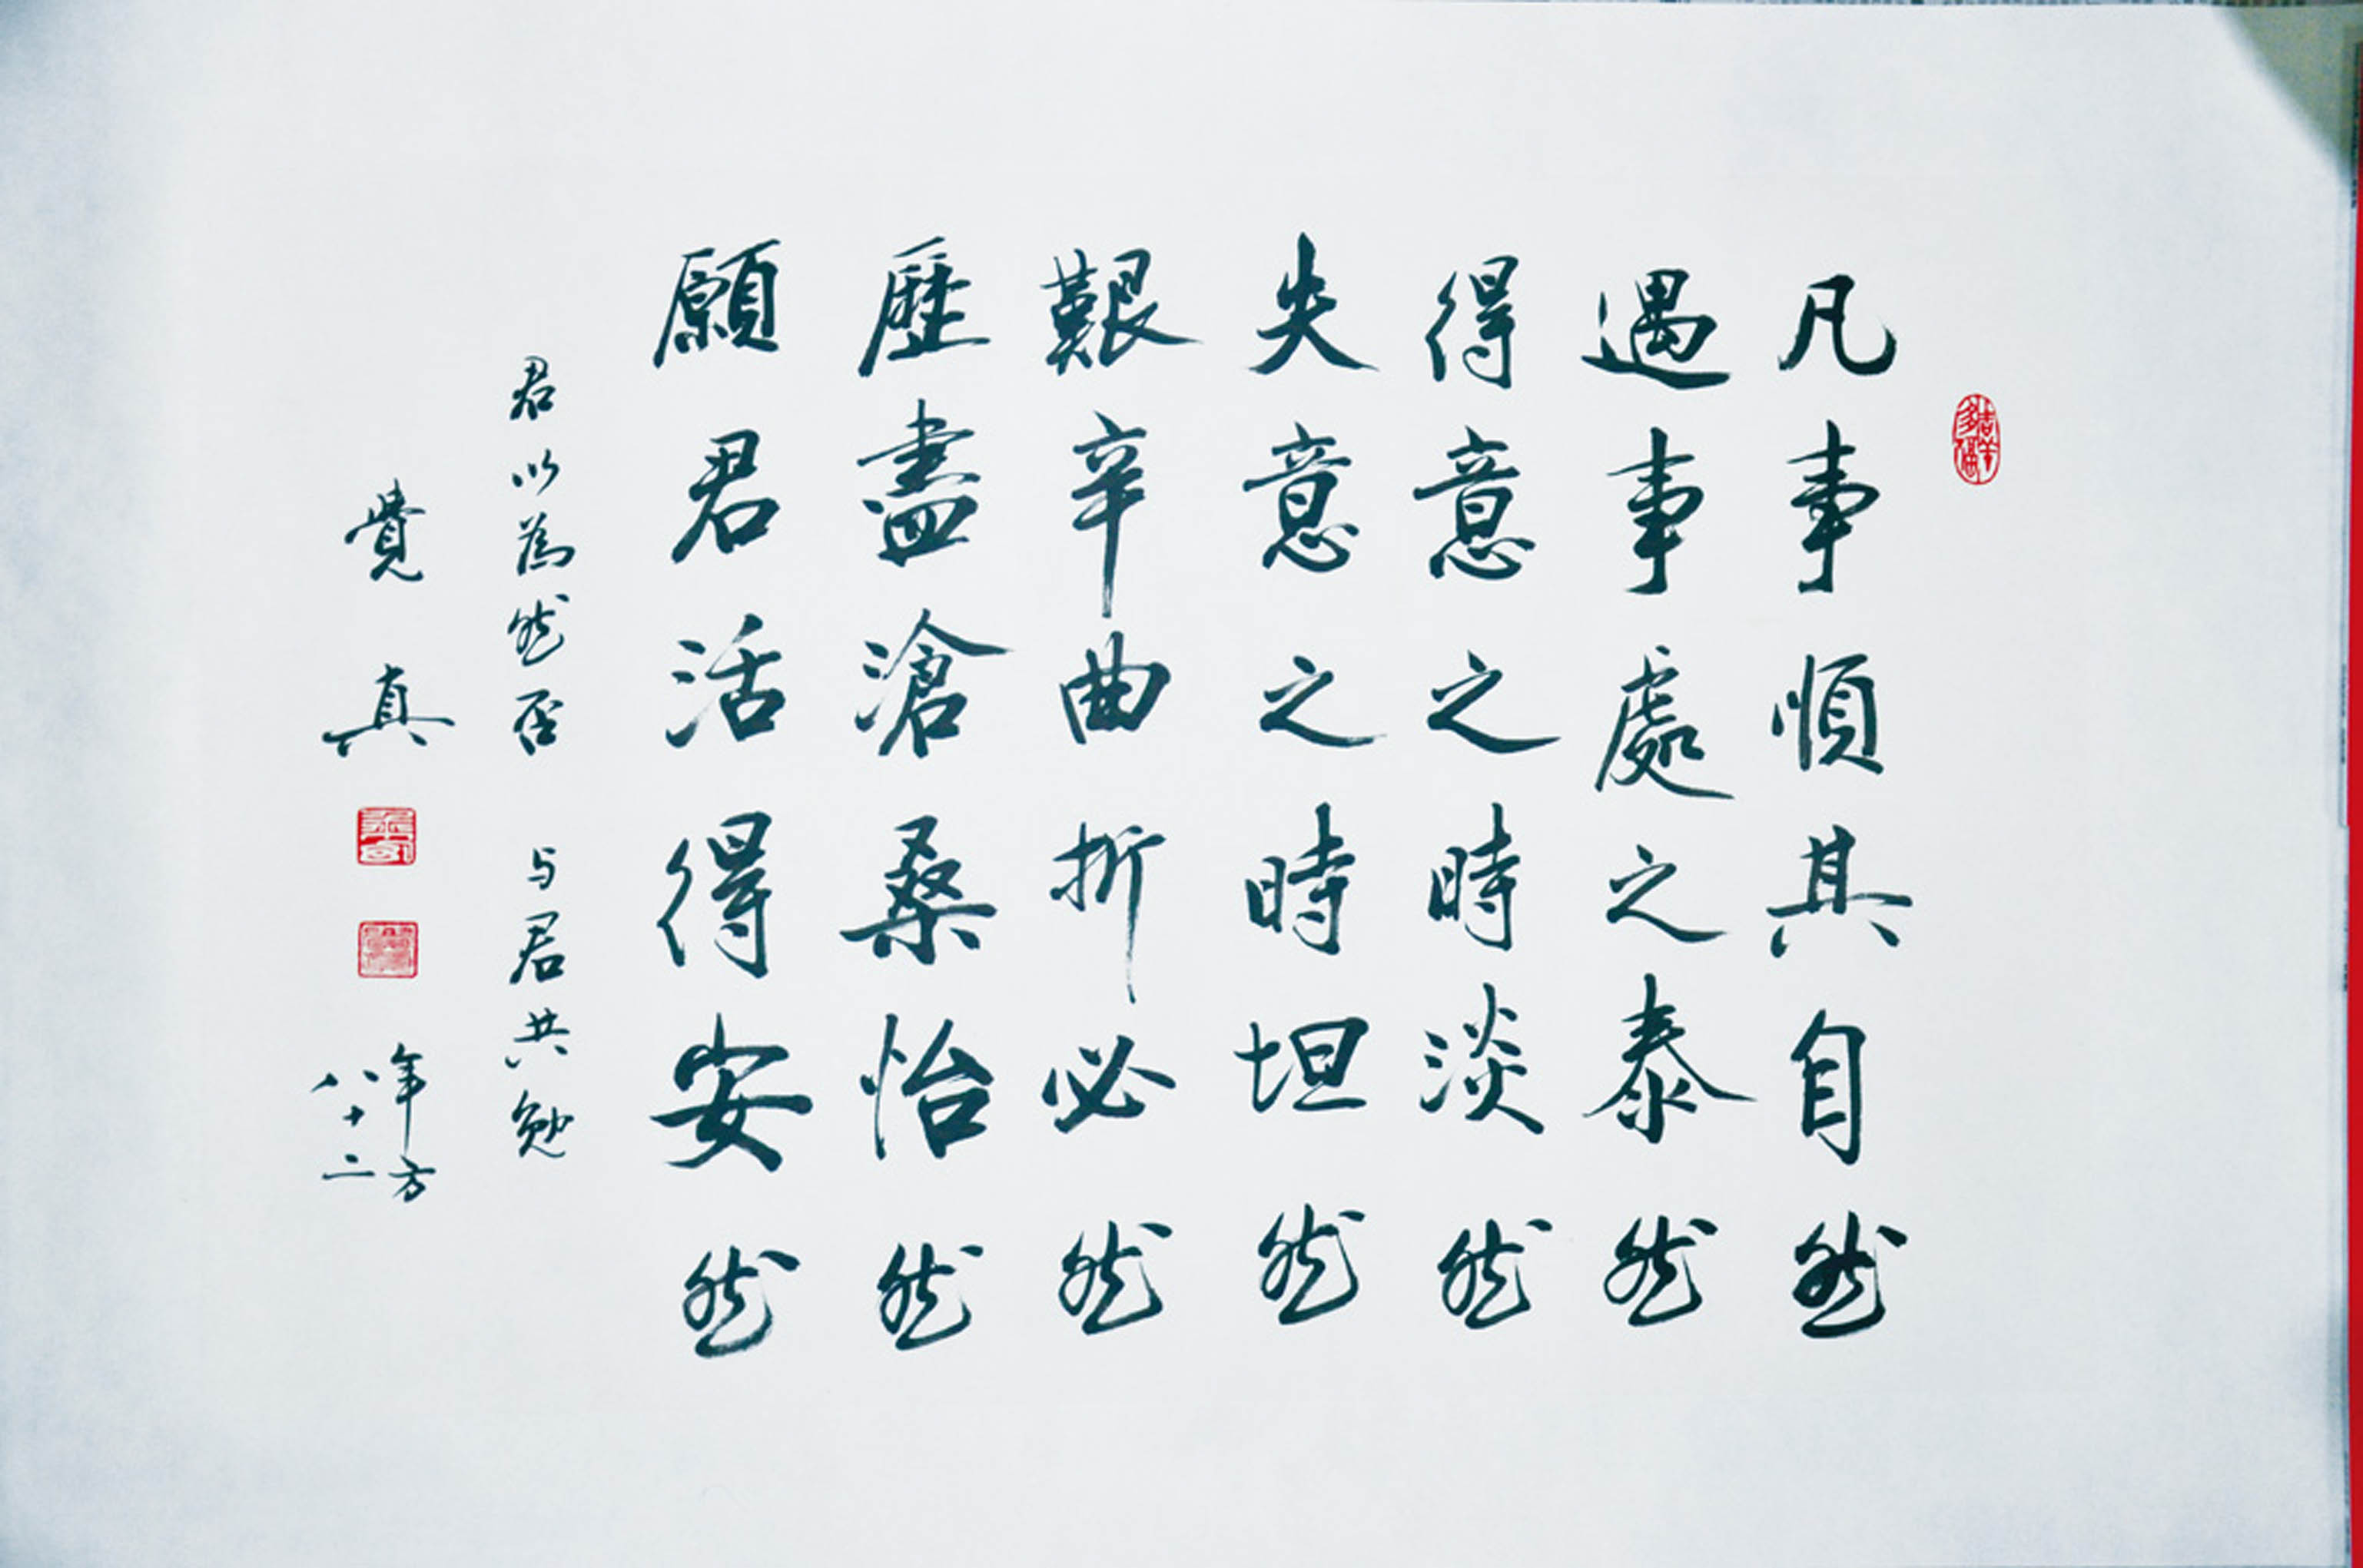 凡事順其自然
遇事處之泰然
得意之時淡然
失意之時坦然
艱辛曲折必然
歷盡滄桑怡然
願君活得安然
君以為然否 与君共勉
覺真
年方
八十二